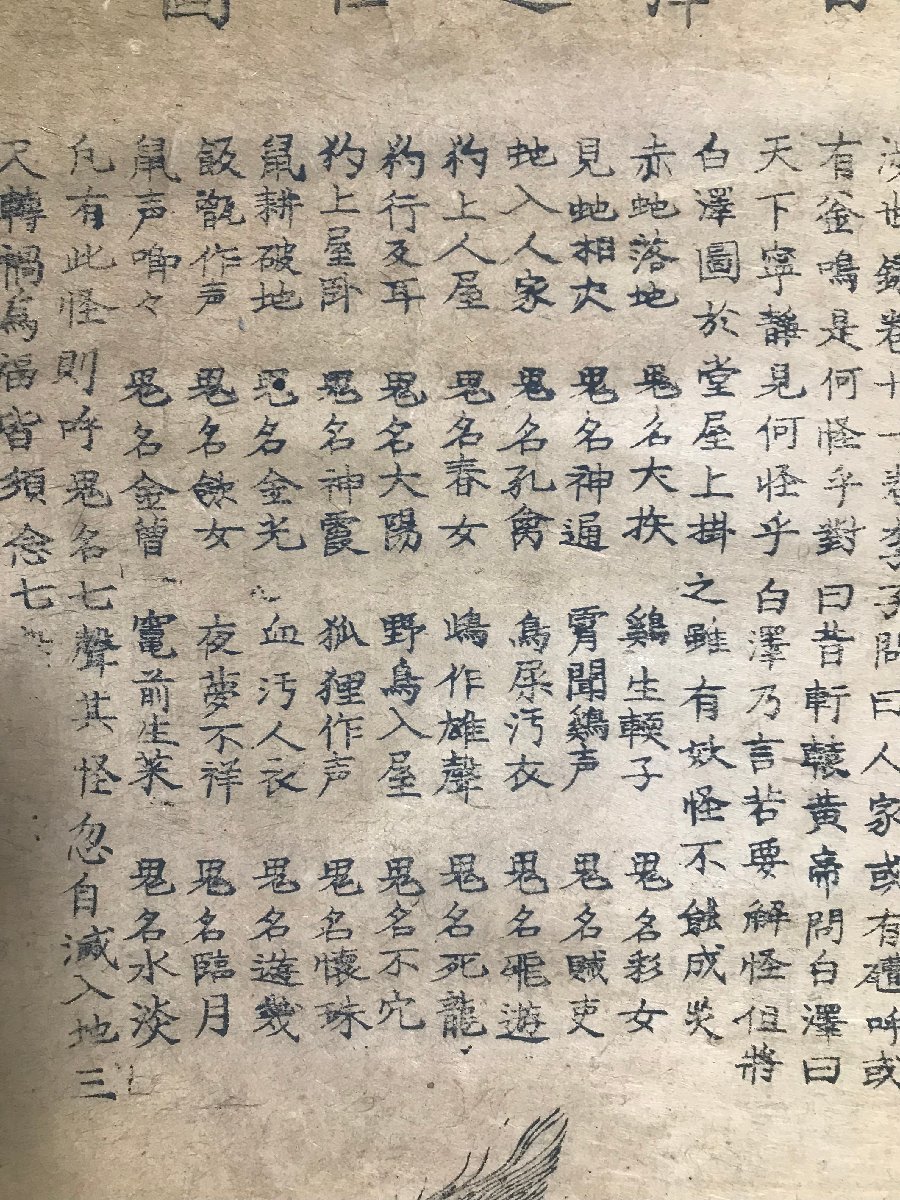 白澤避怪圖
渉世録卷十一卷李子問曰人家或有礶呼或
有釜鳴是何怪乎對曰昔軒轅黄帝問白澤曰
天下寧靜見何怪乎白澤乃言若要解怪但將
白澤圖於堂屋上掛之雖有妖怪不能成災
赤虵落地 鬼名大扶 鷄生輭子 鬼名彩女
見虵相交 鬼名神通 霄聞鷄声 鬼名賊吏
虵入人家 鬼名孔禽 鳥屎汚衣 鬼名飛遊
狗上人屋 鬼名春女 鴟作雄聲 鬼名死龍
狗行反耳 鬼名大陽 野鳥入屋 鬼名不穴
狗上屋卧 鬼名神霞 狐狸作声 鬼名懷珠
鼠耕破地 鬼名金光 血汚人衣 鬼名遊幾
飯甑作声 鬼名飲女 夜夢不祥 鬼名臨月
鼠声啼々 鬼名金曽 竃前生菜 鬼名水淡
凢有此怪則呼鬼名七聲其怪忽自滅入地三
尺轉禍為福皆須念七